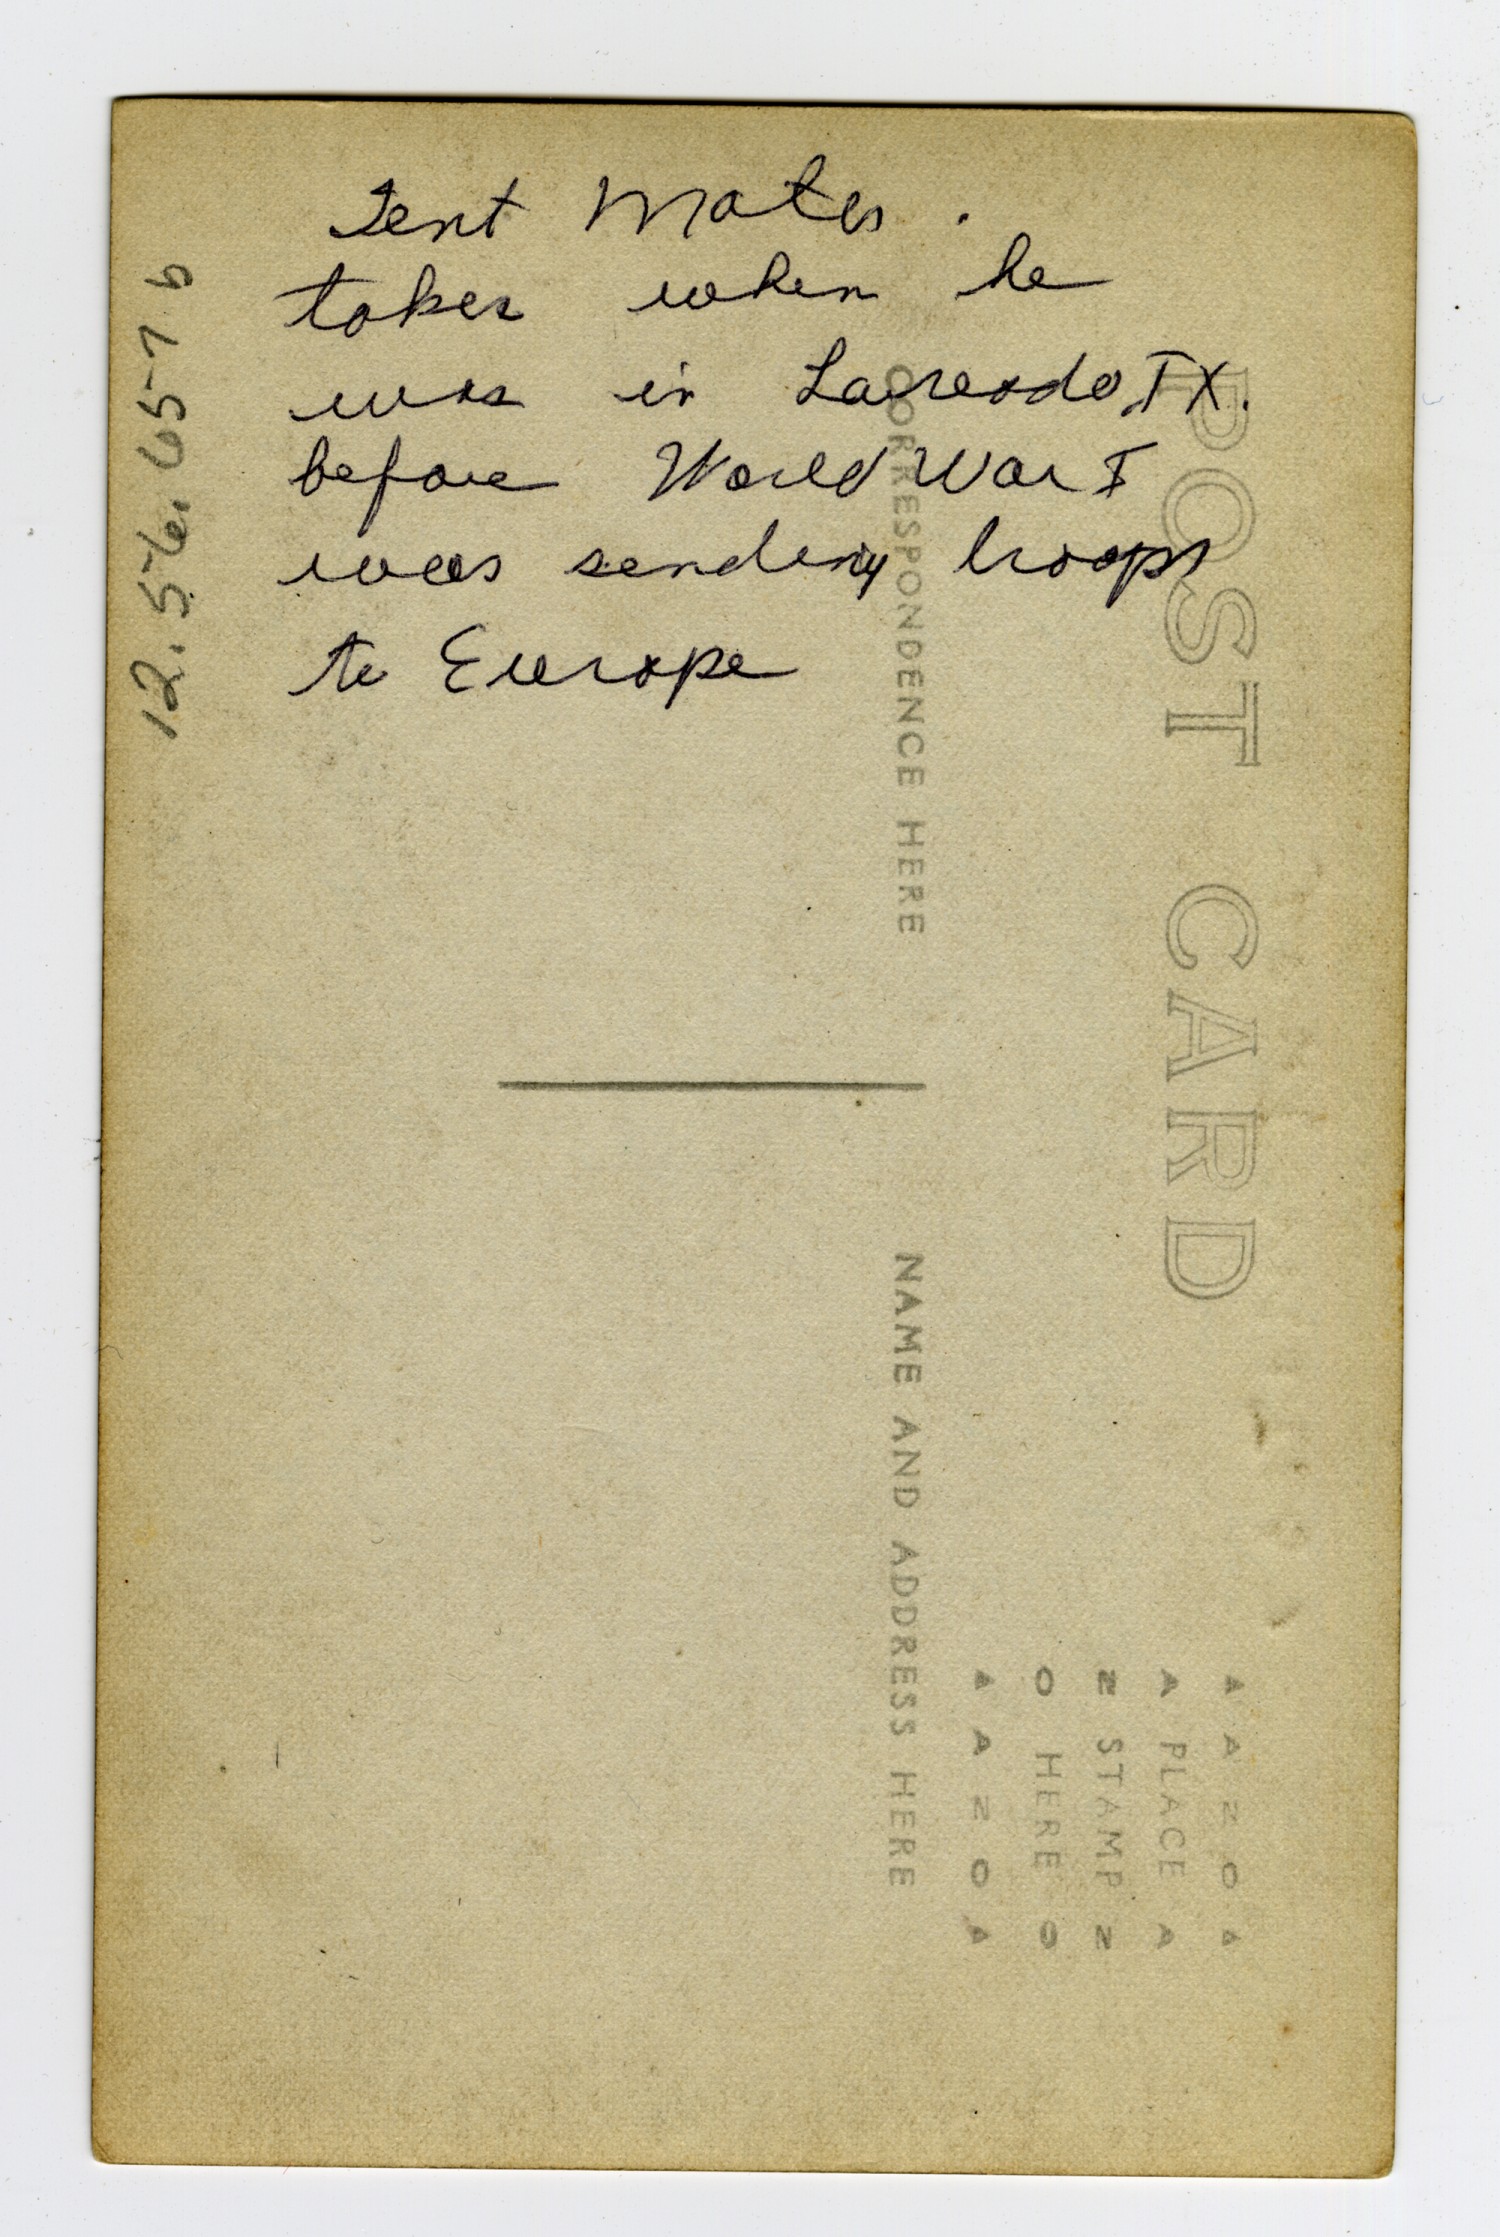 Tent Mates.
taken when he
was in Laredo, TX.
before World War I
was sending troops
to Europe
POST CARD
CORRESPONDENCE HERE
NAME AND ADDRESS HERE
AZO
A PLACE A
Z STAMP Z
O HERE O
AZO